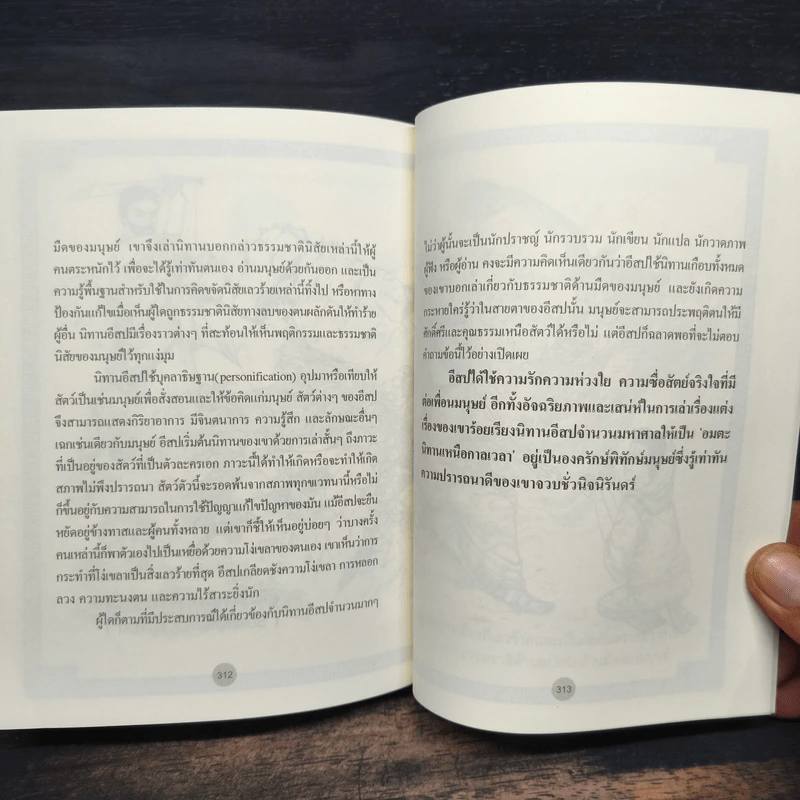 มืดของมนุษย์ เขาจึงเล่านิทานบอกกล่าวธรรมชาตินิสัยเหล่านี้ให้ผู้
คนตระหนักไว้ เพื่อจะได้รู้เท่าทันตนเอง อ่านมนุษย์ด้วยกันออก และเป็น
ความรู้พื้นฐานสำหรับใช้ในการคิดขจัดนิสัยเลวร้ายเหล่านี้ทิ้งไป หรือหาทาง
ป้องกันแก้ไขเมื่อเห็นผู้ใดถูกธรรมชาตินิสัยทางลบของตนผลักดันให้ทำร้าย
ผู้อื่น นิทานอีสปมีเรื่องราวต่างๆ ที่สะท้อนให้เห็นพฤติกรรมและธรรมชาติ
นิสัยของมนุษย์ไว้ทุกแง่มุม
นิทานอีสปใช้บุคลาธิษฐาน(personification) อุปมาหรือเทียบให้
สัตว์เป็นเช่นมนุษย์เพื่อสั่งสอนและให้ข้อคิดแก่มนุษย์ สัตว์ต่างๆ ของอีสป
จึงสามารถแสดงกิริยาอาการ มีจินตนาการ ความรู้สึก และลักษณะอื่นๆ
เฉกเช่นเดียวกับมนุษย์ อีสปเริ่มต้นนิทานของเขาด้วยการเล่าสั้นๆ ถึงภาวะ
ที่เป็นอยู่ของสัตว์ที่เป็นตัวละครเอก ภาวะนี้ได้ทำให้เกิดหรือจะทำให้เกิด
สภาพไม่พึงปรารถนา สัตว์ตัวนี้จะรอดพ้นจากสภาพทุกขเวทนานี้หรือไม่
ก็ขึ้นอยู่กับความสามารถในการใช้ปัญญาแก้ไขปัญหาของมัน แม้อีสปจะยืน
หยัดอยู่ข้างทาสและผู้คนทั้งหลาย แต่เขาก็ชี้ให้เห็นอยู่บ่อยๆ ว่าบางครั้ง
คนเหล่านี้ก็พาตัวเองไปเป็นเหยื่อด้วยความโง่เขลาของตนเอง เขาเห็นว่าการ
กระทำที่โง่เขลาเป็นสิ่งเลวร้ายที่สุด อีสปเกลียดชังความโง่เขลา การหลอก
ลวง ความทะนงตน และความไร้สาระยิ่งนัก
ผู้ใดก็ตามที่มีประสบการณ์ได้เกี่ยวข้องกับนิทานอีสปจำนวนมากๆ
312
ไม่ว่าผู้นั้นจะเป็นนักปราชญ์ นักรวบรวม นักเขียน นักแปล นักวาดภาพ
ผู้ฟัง หรือผู้อ่าน คงจะมีความคิดเห็นเดียวกันว่าอีสปใช้นิทานเกือบทั้งหมด
ของเขาบอกเล่าเกี่ยวกับธรรมชาติด้านมืดของมนุษย์ และยังเกิดความ
กระหายใคร่รู้ว่าในสายตาของอีสปนั้น มนุษย์จะสามารถประพฤติตนให้มี
ศักดิ์ศรีและคุณธรรมเหนือสัตว์ได้หรือไม่ แต่อีสปก็ฉลาดพอที่จะไม่ตอบ
คำถามข้อนี้ไว้อย่างเปิดเผย
อีสปได้ใช้ความรักความห่วงใย ความซื่อสัตย์จริงใจที่มี
ต่อเพื่อนมนุษย์ อีกทั้งอัจฉริยภาพและเสน่ห์ในการเล่าเรื่องแต่ง
เรื่องของเขาร้อยเรียงนิทานอีสปจำนวนมหาศาลให้เป็น ‘อมตะ
นิทานเหนือกาลเวลา’ อยู่เป็นองครักษ์พิทักษ์มนุษย์ซึ่งรู้เท่าทัน
ความปรารถนาดีของเขาจวบชั่วนิจนิรันดร์
313